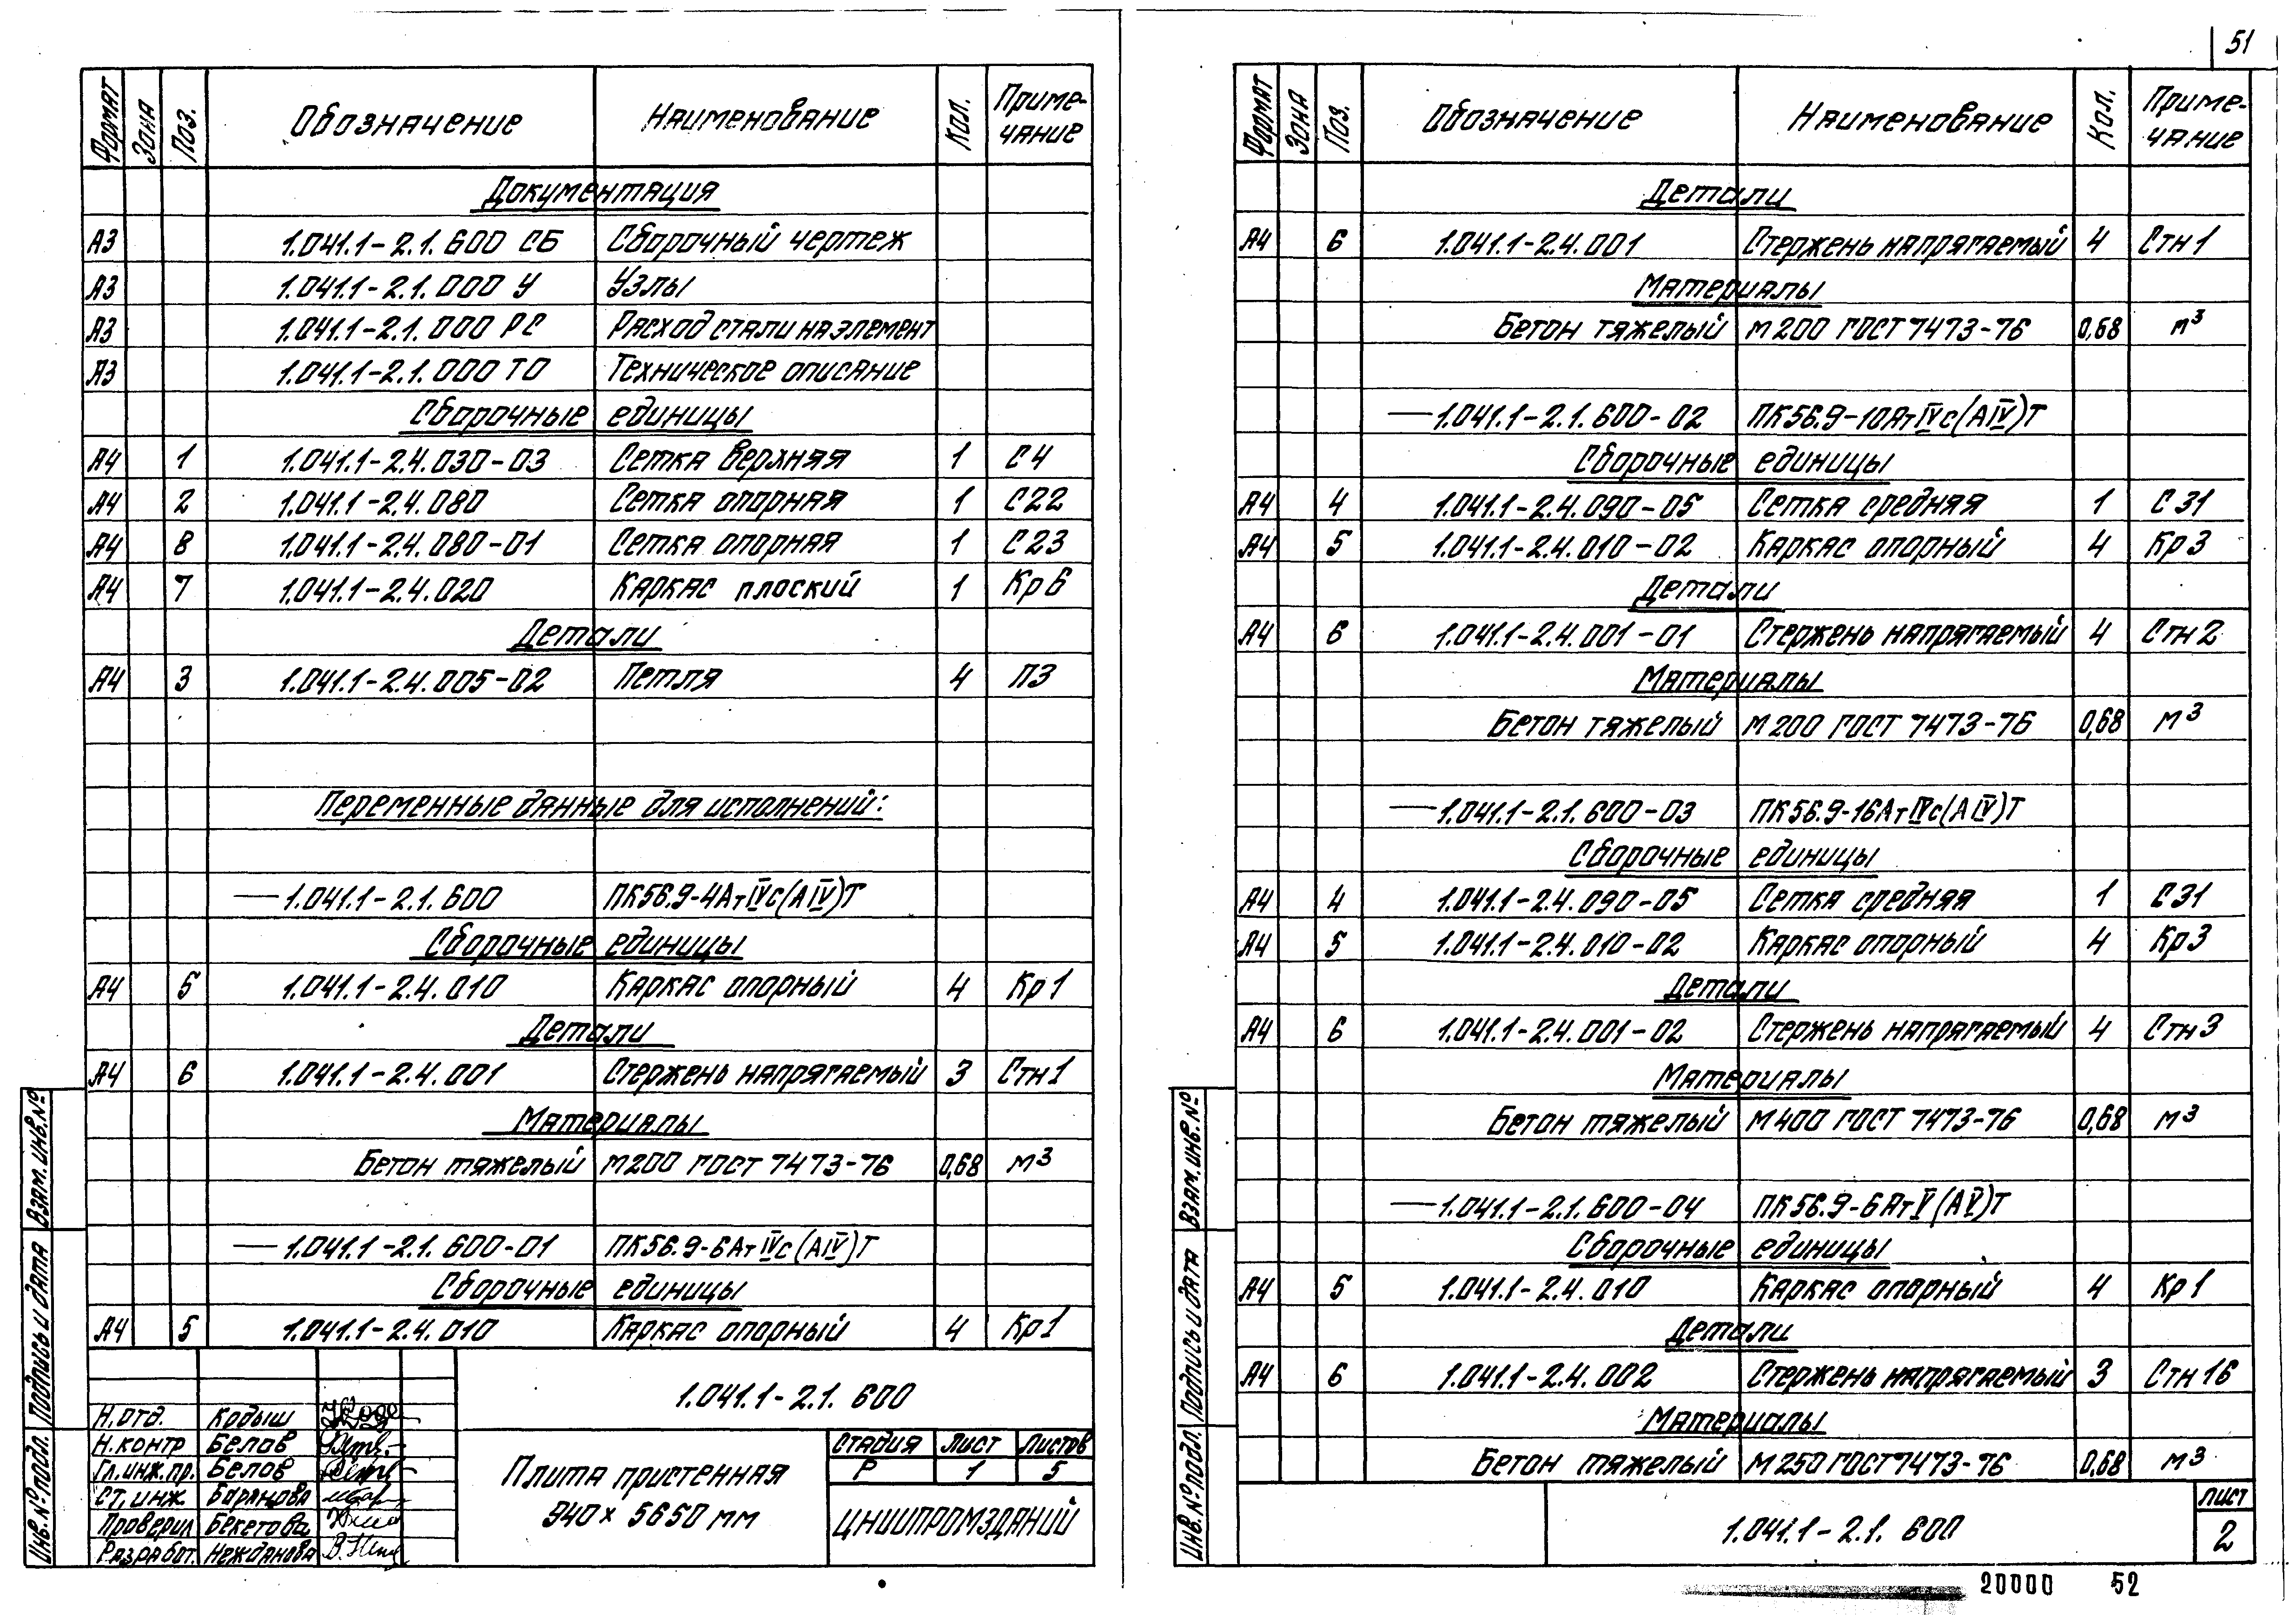 51
Формат Зона Поз. Обозначение Наименование Кол. Приме-
чание
Документация
А3 1.041.1-2.1.600 СБ Сборочный чертеж
А3 1.041.1-2.1.000 У Узлы
А3 1.041.1-2.1.000 РС Расход стали на элемент
А3 1.041.1-2.1.000 ТО Техническое описание
Сборочные единицы
А4 1 1.041.1-2.4.030-03 Сетка верхняя 1 С4
А4 2 1.041.1-2.4.080 Сетка опорная 1 С22
А4 8 1.041.1-2.4.080-01 Сетка опорная 1 С23
А4 7 1.041.1-2.4.020 Каркас плоский 1 Кр6
Детали
А4 3 1.041.1-2.4.005-02 Петля 4 П3
Переменные данные для исполнений:
— 1.041.1-2.1.600 ПК56.9-4АтIVс(АIV)Т
Сборочные единицы
А4 5 1.041.1-2.4.010 Каркас опорный 4 Кр1
Детали
А4 6 1.041.1-2.4.001 Стержень напрягаемый 3 Стн1
Материалы
Бетон тяжелый М200 ГОСТ 7473-76 0,68 м³
— 1.041.1-2.1.600-01 ПК56.9-6АтIVс(АIV)Т
Сборочные единицы
А4 5 1.041.1-2.4.010 Каркас опорный 4 Кр1
1.041.1-2.1.600
Н.отд. Кодыш
Н.контр Белов
Гл.инж.пр. Белов
Ст.инж Баранова
Проверил Бекетова
Разработ. Нежданова
Плита пристенная
940×5650 мм
Стадия Лист Листов
Р 1 5
ЦНИИПРОМЗДАНИЙ
Инв.№подл. Подпись и дата Взам.инв.№
Формат Зона Поз. Обозначение Наименование Кол. Приме-
чание
Детали
А4 6 1.041.1-2.4.001 Стержень напрягаемый 4 Стн1
Материалы
Бетон тяжелый М200 ГОСТ 7473-76 0,68 м³
— 1.041.1-2.1.600-02 ПК56.9-10АтIVс(АIV)Т
Сборочные единицы
А4 4 1.041.1-2.4.090-05 Сетка средняя 1 С31
А4 5 1.041.1-2.4.010-02 Каркас опорный 4 Кр3
Детали
А4 6 1.041.1-2.4.001-01 Стержень напрягаемый 4 Стн2
Материалы
Бетон тяжелый М200 ГОСТ 7473-76 0,68 м³
— 1.041.1-2.1.600-03 ПК56.9-16АтIVс(АIV)Т
Сборочные единицы
А4 4 1.041.1-2.4.090-05 Сетка средняя 1 С31
А4 5 1.041.1-2.4.010-02 Каркас опорный 4 Кр3
Детали
А4 6 1.041.1-2.4.001-02 Стержень напрягаемый 4 Стн3
Материалы
Бетон тяжелый М400 ГОСТ 7473-76 0,68 м³
— 1.041.1-2.1.600-04 ПК56.9-6АтV(АV)Т
Сборочные единицы
А4 5 1.041.1-2.4.010 Каркас опорный 4 Кр1
Детали
А4 6 1.041.1-2.4.002 Стержень напрягаемый 3 Стн16
Материалы
Бетон тяжелый М250 ГОСТ 7473-76 0,68 м³
1.041.1-2.1.600
Лист
2
Инв.№подл. Подпись и дата Взам.инв.№
20000 52